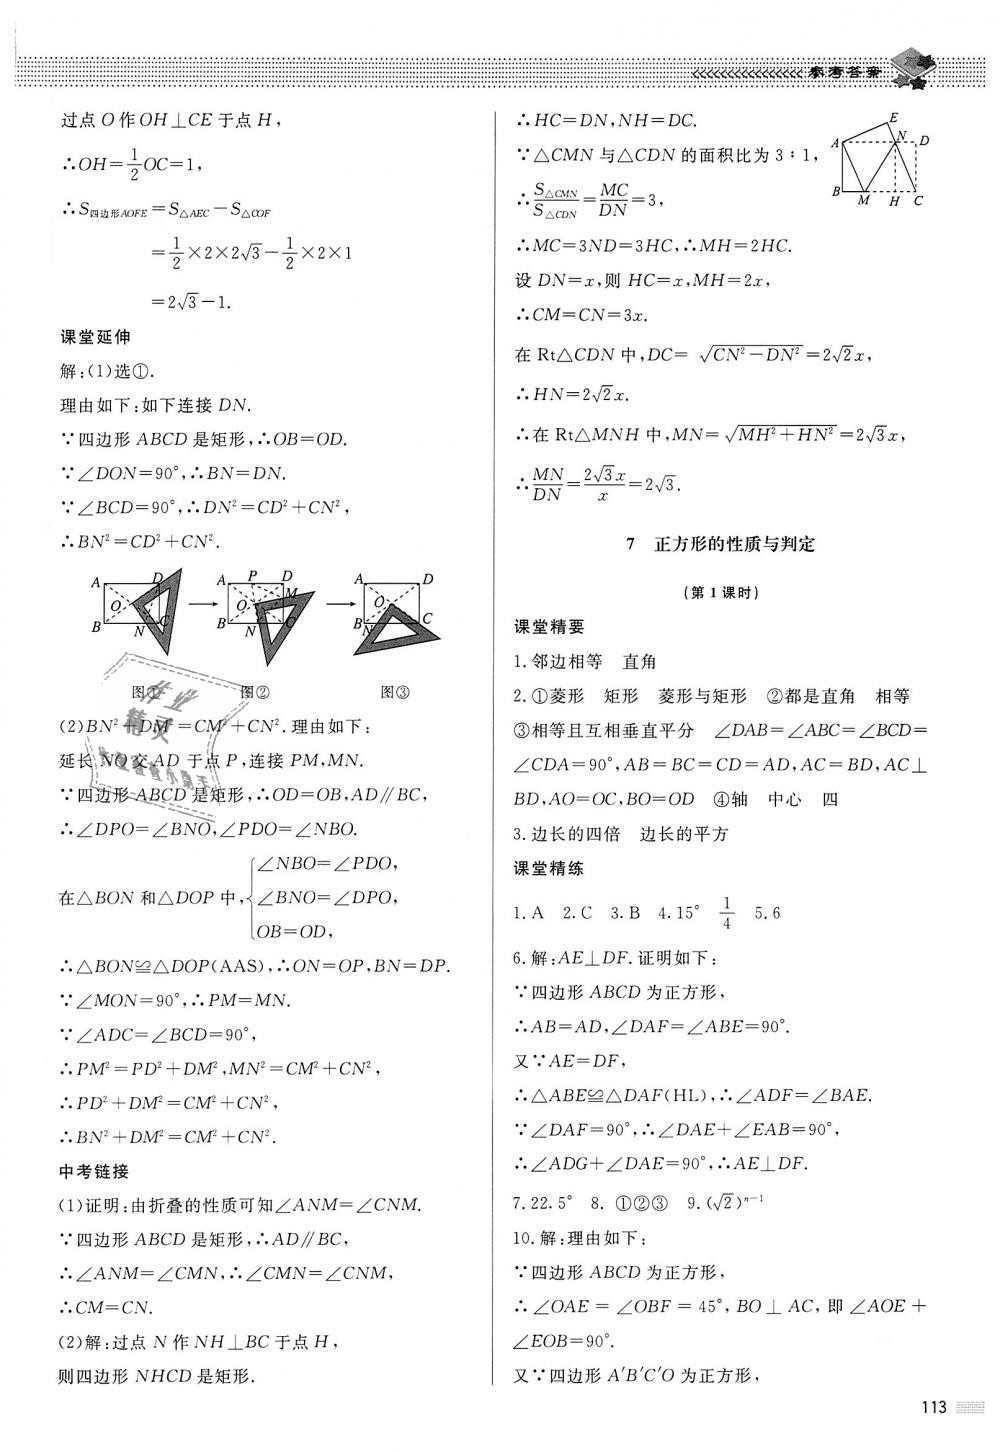 参考答案
过点 O 作 OH⊥CE 于点 H，
∴OH=1/2OC=1，
∴S四边形AOFE=S△AEC-S△COF
=1/2×2×2√3-1/2×2×1
=2√3-1.
课堂延伸
解:(1)选①.
理由如下:如下连接 DN.
∵四边形 ABCD 是矩形,∴OB=OD.
∵∠DON=90°,∴BN=DN.
∵∠BCD=90°,∴DN²=CD²+CN²,
∴BN²=CD²+CN².
A D O B N C
A P D M O B N C
A D O B N C
图① 图② 图③
(2)BN²+DM²=CM²+CN².理由如下:
延长 NO 交 AD 于点 P,连接 PM,MN.
∵四边形 ABCD 是矩形,∴OD=OB,AD∥BC,
∴∠DPO=∠BNO,∠PDO=∠NBO.
在△BON 和△DOP 中,{∠NBO=∠PDO,
∠BNO=∠DPO,
OB=OD,
∴△BON≌△DOP(AAS),∴ON=OP,BN=DP.
∵∠MON=90°,∴PM=MN.
∵∠ADC=∠BCD=90°,
∴PM²=PD²+DM²,MN²=CM²+CN²,
∴PD²+DM²=CM²+CN²,
∴BN²+DM²=CM²+CN².
中考链接
(1)证明:由折叠的性质可知∠ANM=∠CNM.
∵四边形 ABCD 是矩形,∴AD∥BC,
∴∠ANM=∠CMN,∴∠CMN=∠CNM,
∴CM=CN.
(2)解:过点 N 作 NH⊥BC 于点 H,
则四边形 NHCD 是矩形.
∴HC=DN,NH=DC.
∵△CMN 与△CDN 的面积比为 3∶1,
∴S△CMN/S△CDN=MC/DN=3,
∴MC=3ND=3HC,∴MH=2HC.
E A N D B M H C
设 DN=x,则 HC=x,MH=2x,
∴CM=CN=3x.
在 Rt△CDN 中,DC=√(CN²-DN²)=2√2x,
∴HN=2√2x.
∴在 Rt△MNH 中,MN=√(MH²+HN²)=2√3x,
∴MN/DN=2√3x/x=2√3.
7 正方形的性质与判定
(第 1 课时)
课堂精要
1.邻边相等 直角
2.①菱形 矩形 菱形与矩形 ②都是直角 相等
③相等且互相垂直平分 ∠DAB=∠ABC=∠BCD=
∠CDA=90°,AB=BC=CD=AD,AC=BD,AC⊥
BD,AO=OC,BO=OD ④轴 中心 四
3.边长的四倍 边长的平方
课堂精练
1.A 2.C 3.B 4.15° 1/4 5.6
6.解:AE⊥DF.证明如下:
∵四边形 ABCD 为正方形,
∴AB=AD,∠DAF=∠ABE=90°.
又∵AE=DF,
∴△ABE≌△DAF(HL),∴∠ADF=∠BAE.
∵∠DAF=90°,∴∠DAE+∠EAB=90°,
∴∠ADG+∠DAE=90°,∴AE⊥DF.
7.22.5° 8. ①②③ 9.(√2)ⁿ⁻¹
10.解:理由如下:
∵四边形 ABCD 为正方形,
∴ ∠OAE = ∠OBF = 45°, BO ⊥ AC, 即 ∠AOE +
∠EOB=90°.
又∵四边形 A′B′C′O 为正方形,
113